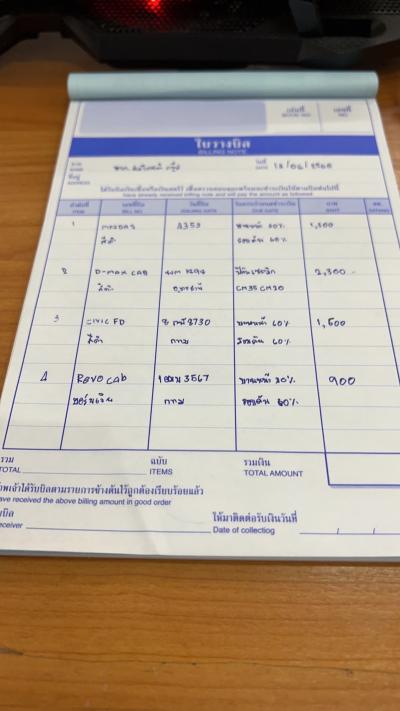 เล่มที่ เลขที่
BOOK NO. NO.
ใบวางบิล
BILLING NOTE
นาม
NAME
วันที่ 18/06/2568
DATE
ที่อยู่
ADDRESS
ได้รับบิลเงินเชื่อหรือใบส่งของไว้ เพื่อตรวจสอบและเตรียมจะชำระเงินให้ตามบิลดังต่อไปนี้
have already received billing note and will pay the amount as followed.
ลำดับที่ เลขที่บิล วันที่บิล วันครบกำหนดชำระเงิน
ITEM BILL NO. ISSUING DATE DUE DATE
1 MAZDA3 A359 บานหน้า 20% 1,300
สีดำ รอบคัน 60%
2 D-MAX CAB 2,300.-
สีดำ CM35 CM20
3 CIVIC FD 8730 บานหน้า 60% 1,600
สีดำ กทม รอบคัน 60%
4 Revo cab 3567 บานหน้า 20% 900
กทม รอบคัน 60%
รวม ฉบับ รวมเงิน
TOTAL ITEMS TOTAL AMOUNT
าพเจ้าได้รับบิลตามรายการข้างต้นไว้ถูกต้องเรียบร้อยแล้ว
ave received the above billing amount in good order
ให้มาติดต่อรับเงินวันที่
eceiver Date of collectiog / /